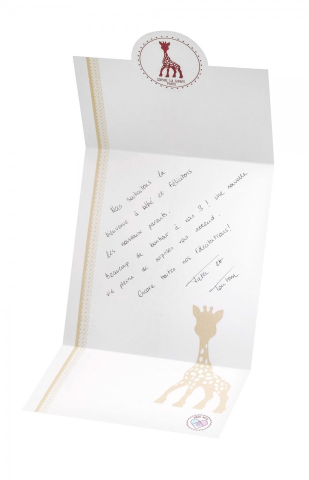 SOPHIE LA GIRAFE
Nous souhaitons la
bienvenue à bébé et félicitons
les nouveaux parents.
beaucoup de bonheur à vous 3! une nouvelle
vie pleine de surprises vous attend.
Encore toutes nos félicitations!
et